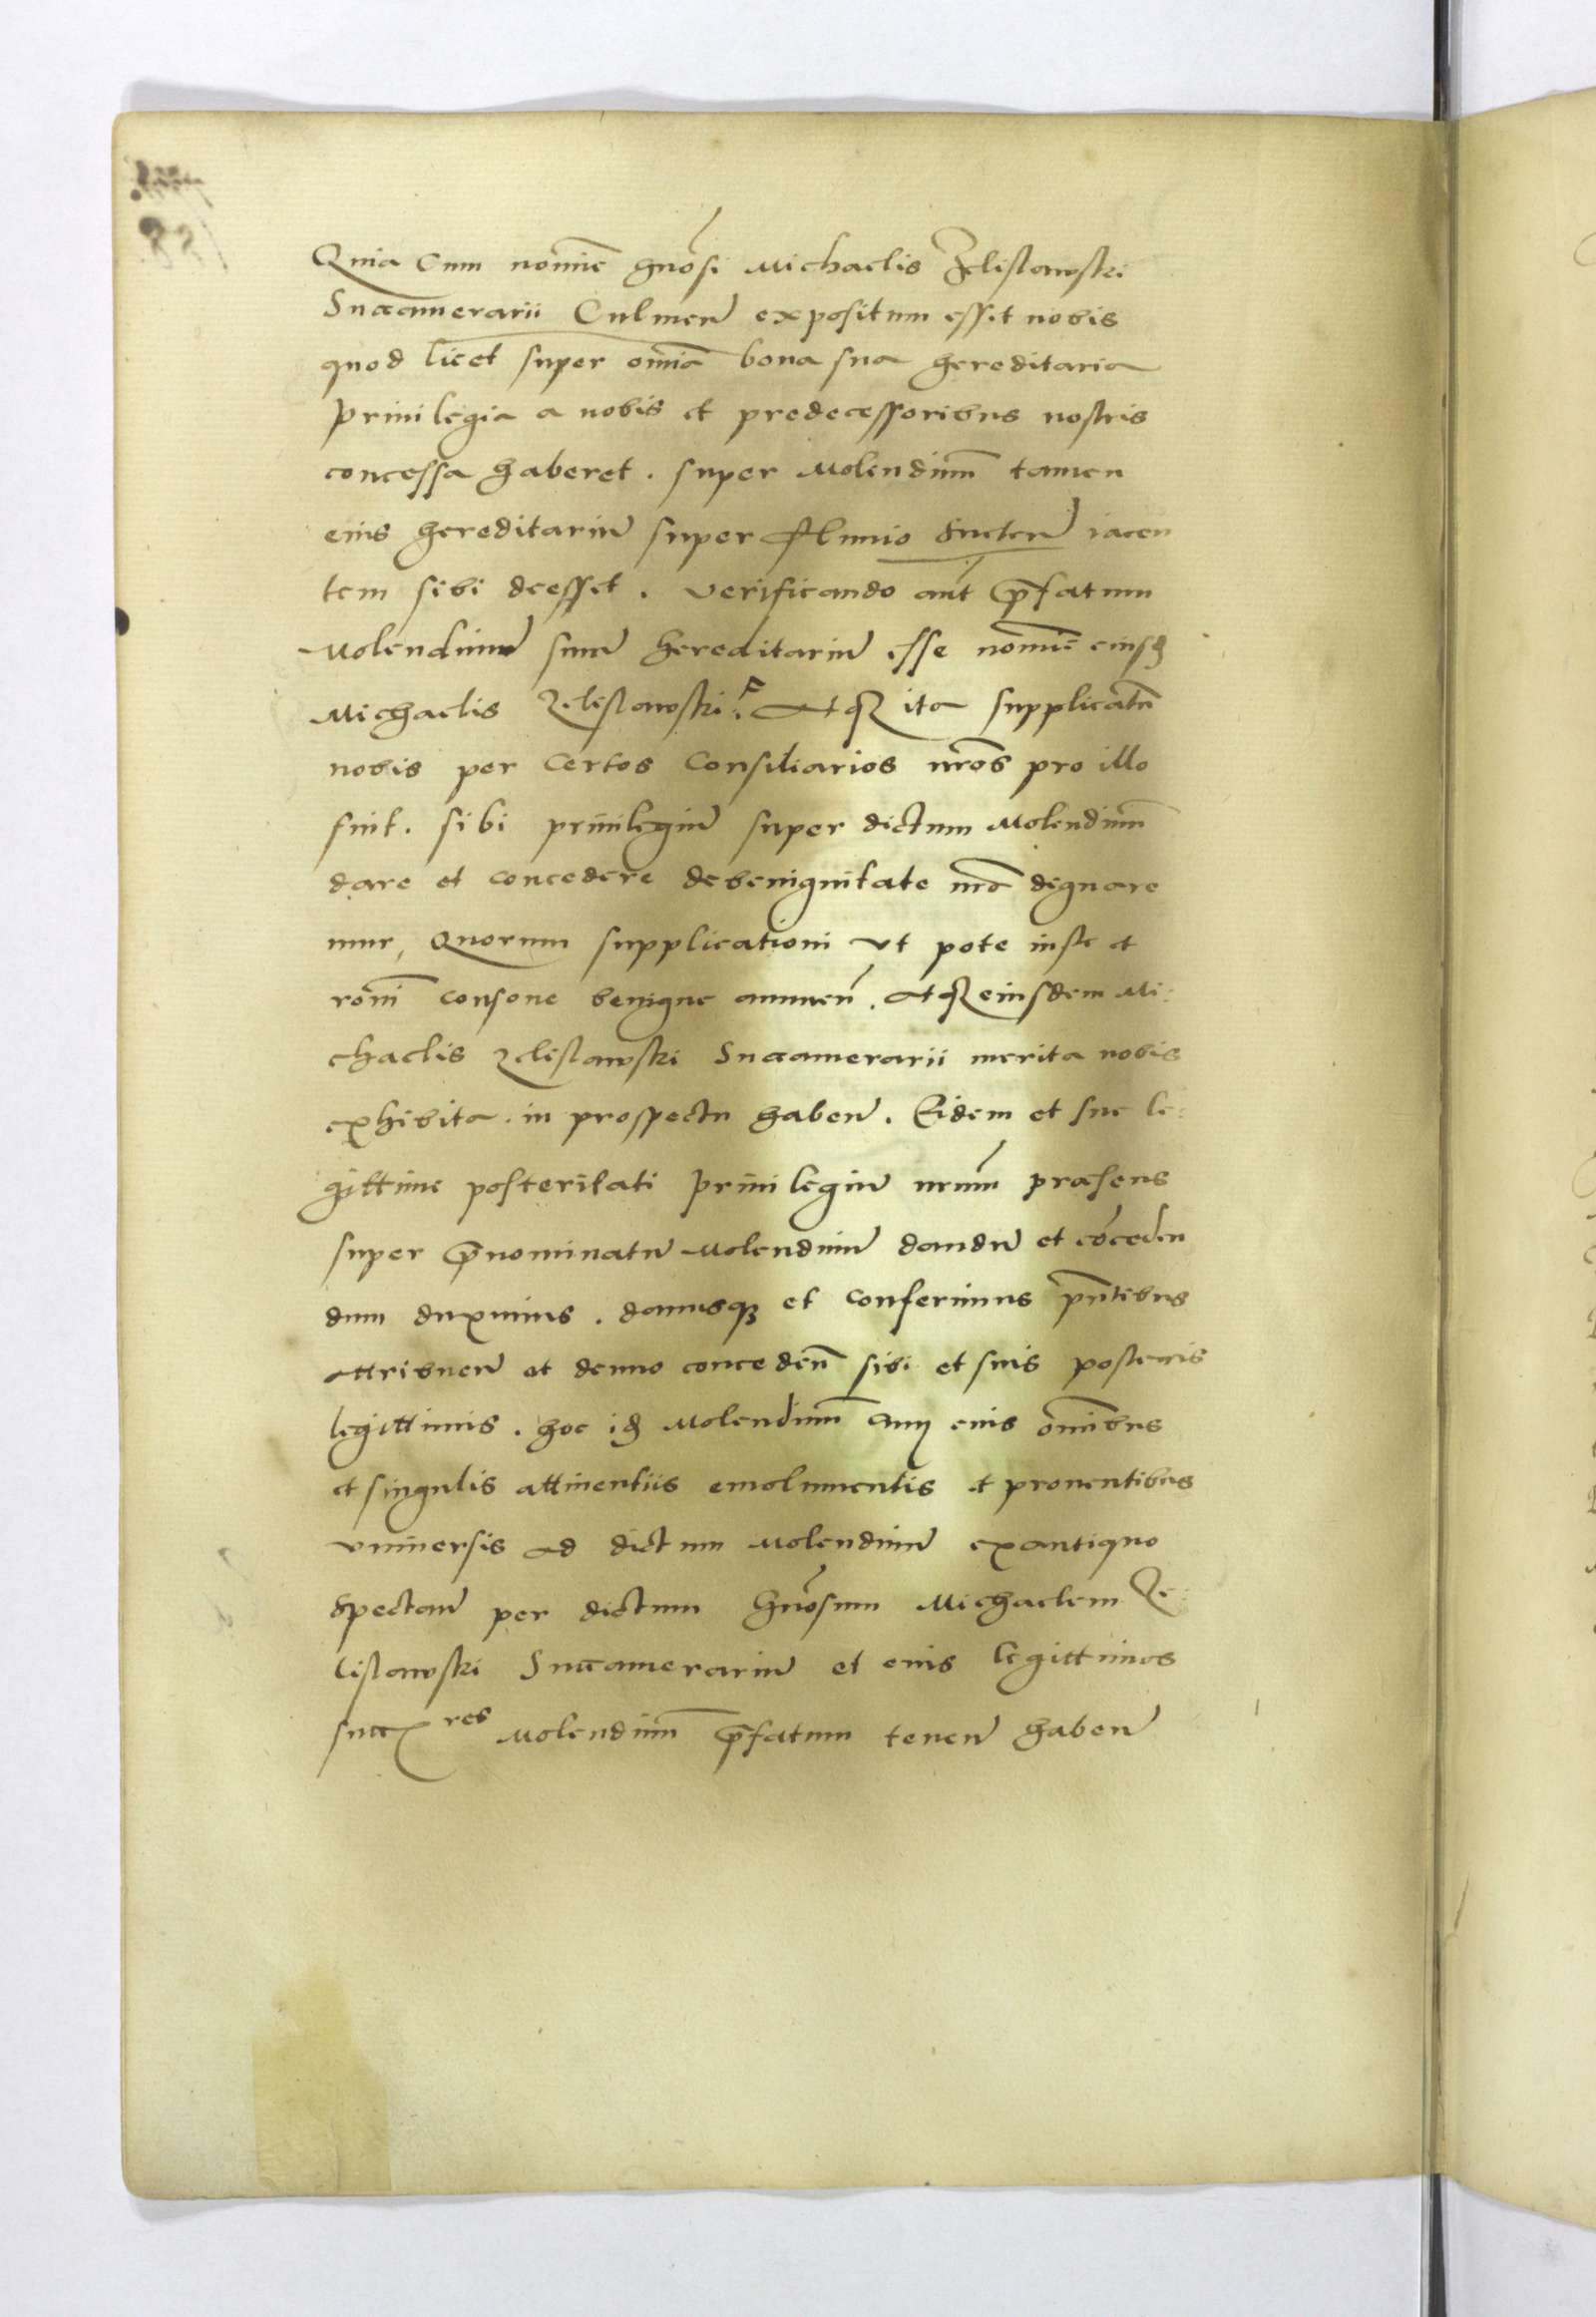 Quia Cum nomīe gnōsi Michaelis Zelislawski
Succamerarii Culmen̄ expositum esset nobis
quod licet super omīa bona sua hereditaria
priuilegia a nobis et predecessoribus nostris
concessa haberet. super Molendinū tamen
eius hereditariū super fluuio iacen
tem sibi deesset. verificando aūt p̄fatum
Molendinū suū hereditariū esse nomīe eiusd
Michaelis Zelislawski. Atqȝ ita supplicatū
nobis per certos Consiliarios nrōs pro illo
fuit. sibi priuilegiū super dictum Molendinū
dare et concedere de benignitate nrā dignare
mur, Quorum supplicationi vt pote iuste et
rōni consone benigne annuen̄. Atqȝ eiusdem Mi:
chaelis Zelislawski Succamerarii merita nobis
exhibita. in prospectu haben̄. Eidem et sue le:
gittime posteritati priuilegiū nrūm præsens
super p̄nominatū Molendinū dandū et cōceden
dum duximus. damusqȝ et conferimus pn̄tibus
attribuen̄ et denuo conceden̄ sibi et suis posteris
legittimis. hoc id Molendinū cum eius omībus
et singulis attinentiis emolumentis et prouentibus
vniuersis ad dictum Molendinū ex antiquo
spectan̄ per dictum Gnōsum Michaelem Ze:
lislawski Succamerariū et eius legittimos
succres Molendinū p̄fatum tenen̄ haben̄